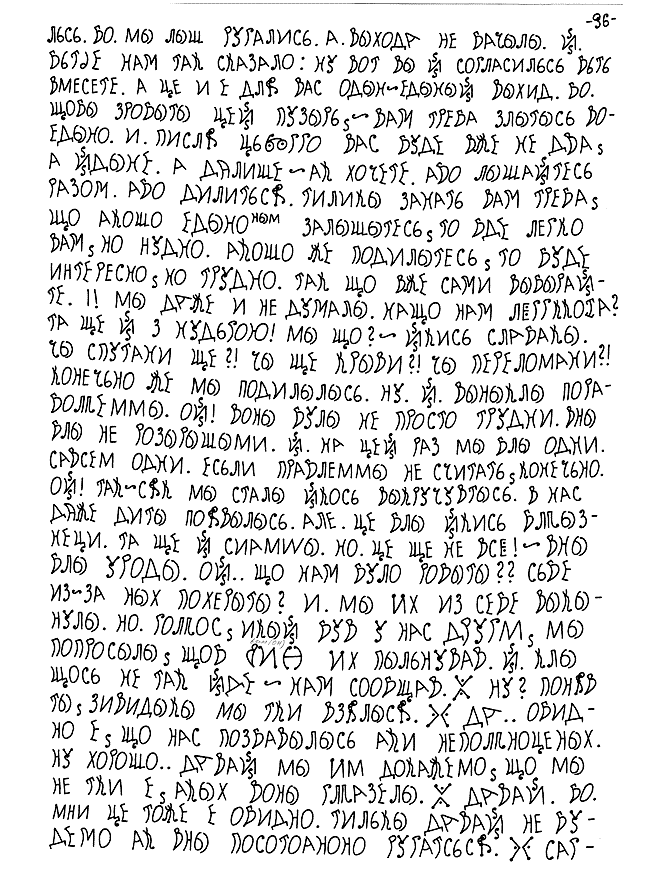 -96-
ЛЬСЬ. БО. МЫ ЛЫШ РУГАЛИСЬ. А. ВЫХОДА НЕ БАЧЫЛЫ. Й.
ВЬТЬЕ НАМ ТАК СКАЗАЛО: НУ ВОТ ВЫ Й СОГЛАСИЛЬСЬ БЬТЬ
ВМЕСЕТЕ. А ЦЕ И Е ДЛЯ ВАС ОДЫН~ЕДЫНЫЙ ВЫХИД. БО.
ЩОБЫ ЗРОБЫТЫ ЦЕЙ ПУЗЫРЬ, ~ ВАМ ТРЕБА ЗЛЫТЫСЬ ВО-
ЕДЫНО. И. ПИСЛЯ ЦЬОГО ВАС БУДЕ ВЖЕ НЕ ДВА,
А ЙДЫНЕ. А ДАЛИШЕ ~ АК ХОЧЕТЕ. АБО ЛЫШАЙТЕСЬ
РАЗОМ. АБО ДИЛИТЬСЯ. ТИЛИКЫ ЗНАТЬ ВАМ ТРЕБА,
ЩО АКЫШО ЕДЫНОНЫМ ЗАЛЫШЫТЕСЬ, ТО БДЕ ЛЕГКО
ВАМ, НО НУДНО. АКЫШО ЖЕ ПОДИЛЫТЕСЬ, ТО БУДЕ
ИНТЕРЕСНО, НО ТРУДНО. ТАК ЩО ВЖЕ САМИ ВЫБЫРАЙ-
ТЕ. !! МЫ ДАЖЕ И НЕ ДУМАЛЫ. НАЩО НАМ ЛЕГГККОТА?
ТА ЩЕ Й З НУДЬГОЮ! МЫ ЩО? ~ ЙАКИСЬ СЛАБАКЫ.
ЧЫ СПУТАНИ ЩЕ?! ЧЫ ЩЕ КРЫВИ?! ЧЫ ПЕРЕЛОМАНИ?!
КОНЕЧЬНО ЖЕ МЫ ПОДИЛЫЛЫСЬ. НУ. Й. ВЫНЫКЛЫ ПОРА-
БОЛМЕММЫ. ОЙ! ВОНЫ БУЛЫ НЕ ПРОСТО ТРУДНИ. ВНЫ
БЛЫ НЕ РОЗЫРЫШЫМИ. Й. НА ЦЕЙ РАЗ МЫ БЛЫ ОДНИ.
САВСЕМ ОДНИ. ЕСЬЛИ ПРАБЛЕММЫ НЕ СЧИТАТЬ, КОНЕЧЬНО.
ОЙ! ТАК~СЯК МЫ СТАЛЫ ЙАКОСЬ ВЫКРУЧУВТЫСЬ. В НАС
ДАЖЕ ДИТЫ ПОЯВЫЛЫСЬ. АЛЕ. ЦЕ БЛЫ ЙАКИСЬ БЛЫЗ-
НЕЦИ. ТА ЩЕ Й СИАМИЫ. НО. ЦЕ ЩЕ НЕ ВСЕ! ~ ВНЫ
БЛЫ УРОДЫ. ОЙ.. ЩО НАМ БУЛО РОБЫТЫ?? СЬВЕ
ИЗ~ЗА НЫХ ПОХЕРЫТЫ? И. МЫ ИХ ИЗ СЕБЕ ВЫКЫ-
НУЛЫ. НО. ГОЛМОС, ИКЫЙ БУВ У НАС ДРУГМ, МЫ
ПОПРОСЫЛЫ, ЩОБ ИХ ПЫЛЬНУВАВ. Й. КЛЫ
ЩОСЬ НЕ ТАК ЙДЕ ~ НАМ СООБЩАВ. Ж НУ? ПОНЯВ
ТЫ, ЗИВИДЫКЫ МЫ ТКИ ВЗЯЛЫСЯ. Ж ДА.. ОБИД-
НО Е, ЩО НАС ПОЗБАВЫЛЫСЬ АКИ НЕПОЛМНОЦЕНЫХ.
НУ ХОРОШО.. ДАВАЙ МЫ ИМ ДОКАЖЕМО, ЩО МЫ
НЕ ТКИ Е, АКЫХ ВОНЫ ГЛМАЗЕЛЫ. Ж ДАВАЙ. БО.
МНИ ЦЕ ТОЖЕ Е ОБИДНО. ТИЛЬКЫ ДАВАЙ НЕ БУ-
ДЕМО АК ВНЫ ПОСОТОАНОНО РУГАТСЬСЯ. Ж САГ-